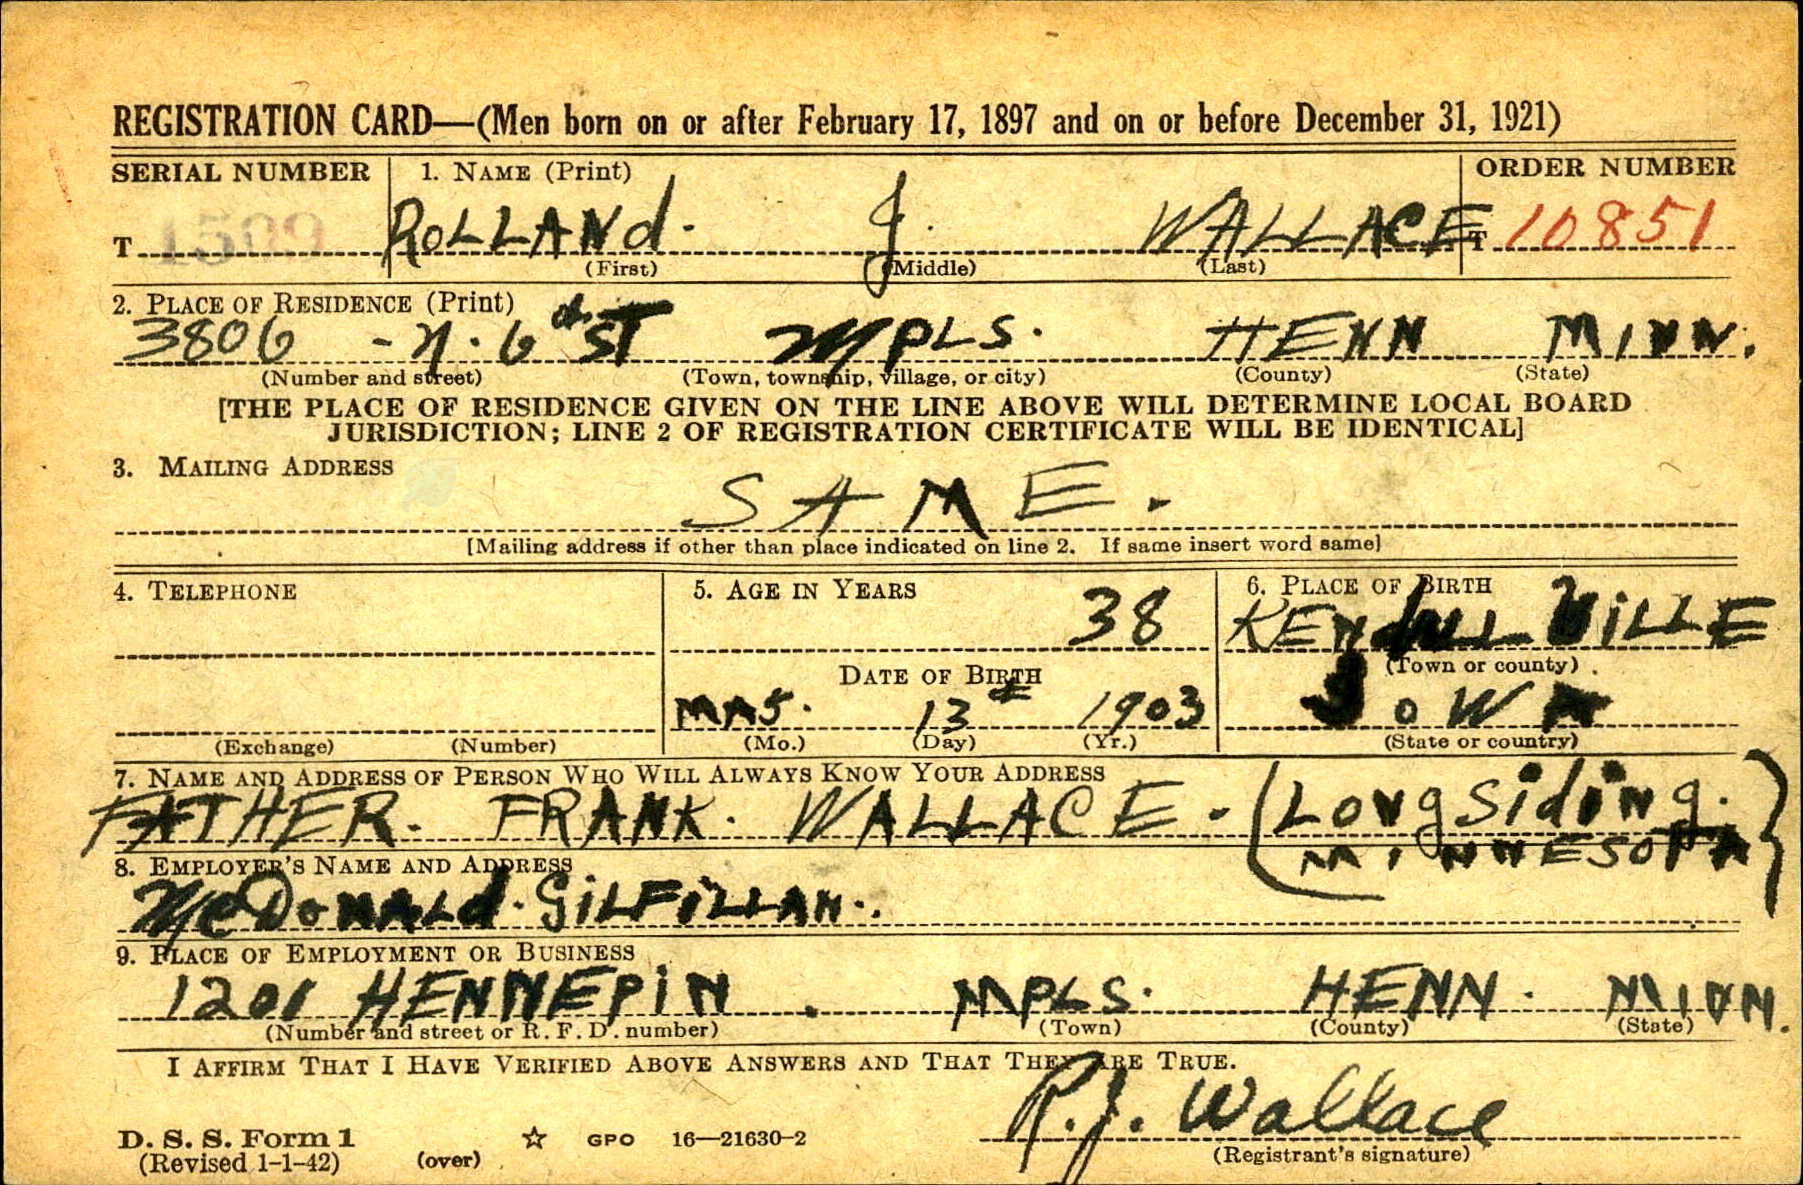 REGISTRATION CARD—(Men born on or after February 17, 1897 and on or before December 31, 1921)
SERIAL NUMBER 1. NAME (Print) ORDER NUMBER
T 1509 ROLLANd. J. WALLACE T 10851
(First) (Middle) (Last)
2. PLACE OF RESIDENCE (Print)
3806 - N. 6th ST MPLS. HENN MINN.
(Number and street) (Town, township, village, or city) (County) (State)
[THE PLACE OF RESIDENCE GIVEN ON THE LINE ABOVE WILL DETERMINE LOCAL BOARD
JURISDICTION; LINE 2 OF REGISTRATION CERTIFICATE WILL BE IDENTICAL]
3. MAILING ADDRESS
SAME.
[Mailing address if other than place indicated on line 2. If same insert word same]
4. TELEPHONE 5. AGE IN YEARS 6. PLACE OF BIRTH
38 VILLE
(Town or county)
DATE OF BIRTH
13th 1903 IOWA
(Exchange) (Number) (Mo.) (Day) (Yr.) (State or country)
7. NAME AND ADDRESS OF PERSON WHO WILL ALWAYS KNOW YOUR ADDRESS
FATHER. FRANK. WALLACE. (Long Siding.
MINNESOTA)
8. EMPLOYER'S NAME AND ADDRESS
McDONALd. GiLFiLLAN.
9. PLACE OF EMPLOYMENT OR BUSINESS
1201 HENNEPiN. MPLS. HENN. MINN.
(Number and street or R. F. D. number) (Town) (County) (State)
I AFFIRM THAT I HAVE VERIFIED ABOVE ANSWERS AND THAT THEY ARE TRUE.
R.J. Wallace
D. S. S. Form 1 ☆ GPO 16—21630-2
(Revised 1-1-42) (over) (Registrant's signature)